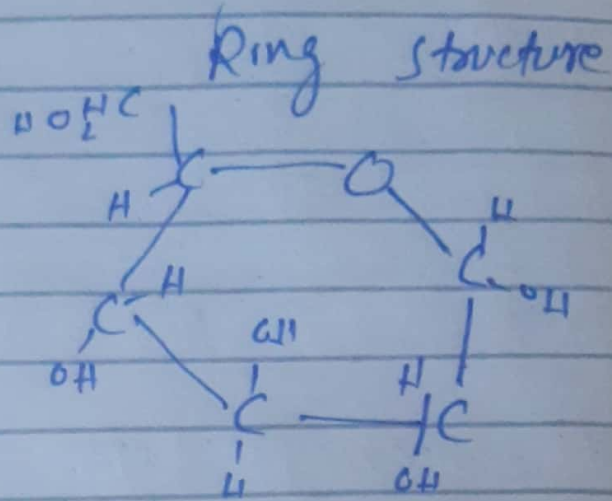 Ring structure
HOH2C
C O
H
H
C
H
C OH
OH
OH H
C C
H OH